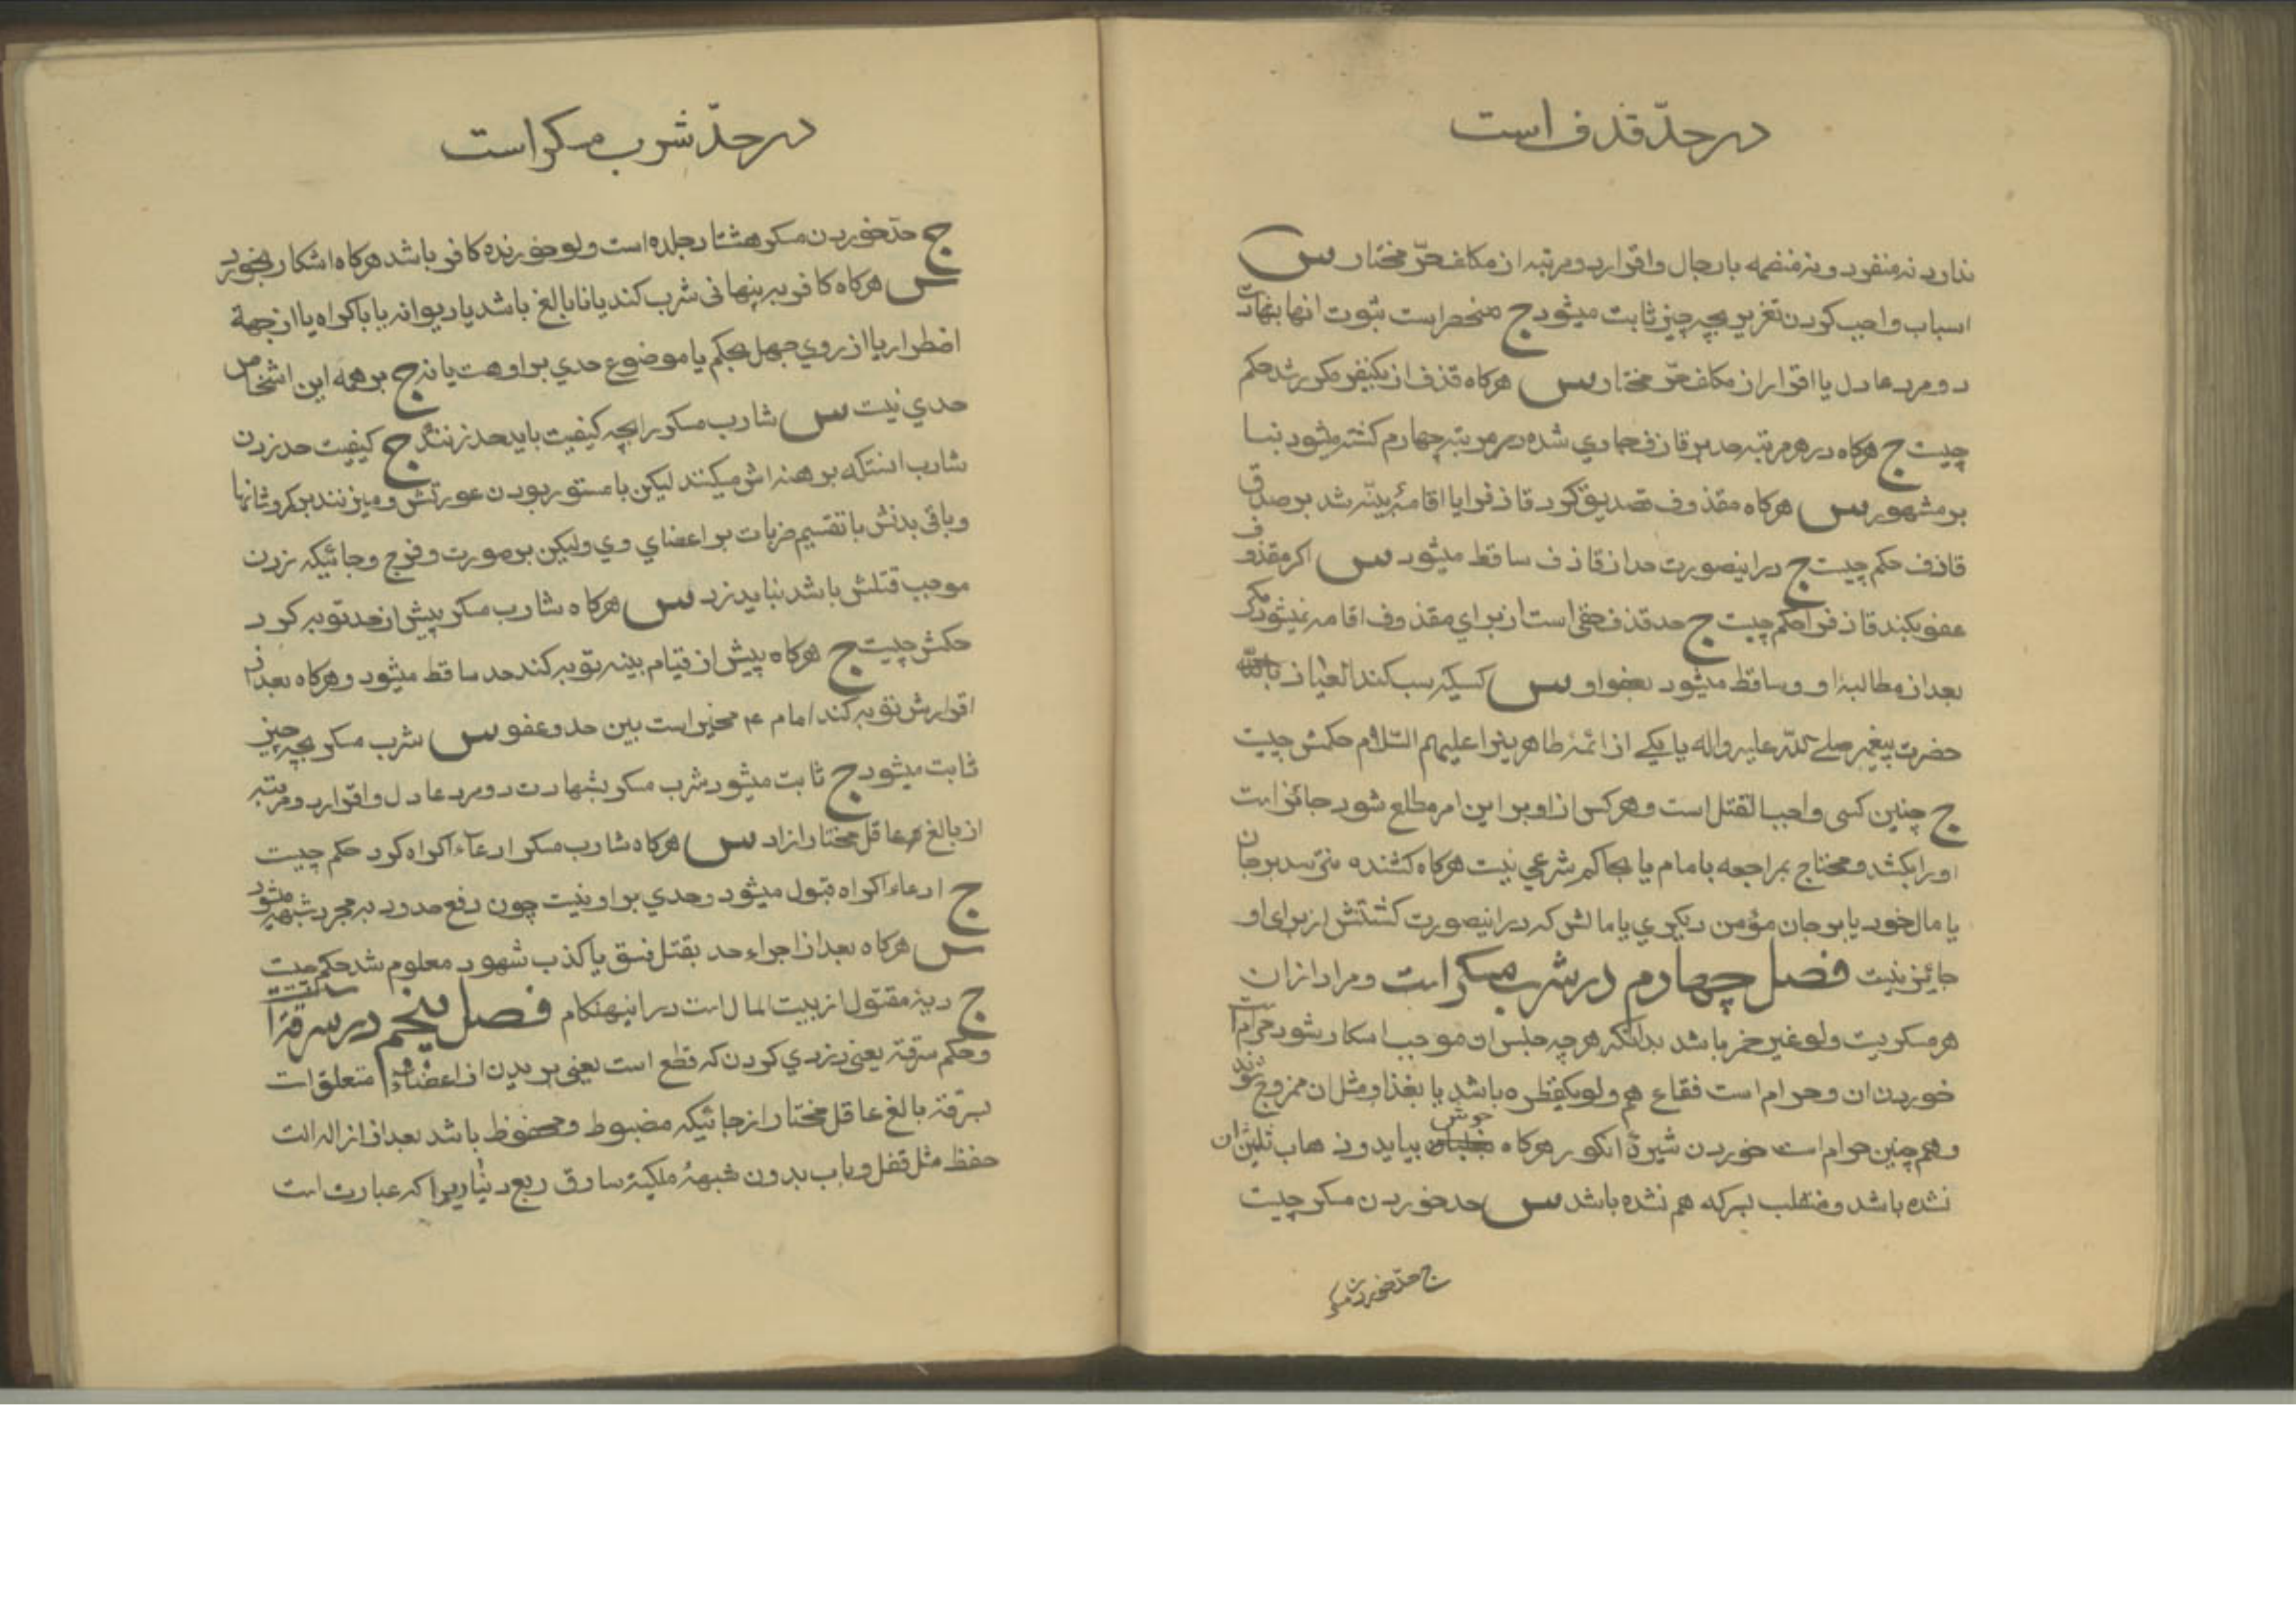 در حدّ قذف است
ندارد نه منفرد و نه منضمه با رجال و اقرار دو مرتبه از مکلف حرّ مختار س
اسباب واجب کردن تعزیر بچه چیز ثابت میشود ج منحصر است ثبوت انها بشهادت
دو مرد عادل یا اقرار از مکلف حرّ مختار س هرکاه قذف از یکنفر مکرر شد حکم
چیست ج هرکاه در هر مرتبه حد بر قاذف جاری شده در مرتبه چهارم کشته میشود بنا
بر مشهور س هرکاه مقذوف تصدیق کرد قاذف را یا اقامهٔ بینّه شد بر صدق
قاذف حکم چیست ج در اینصورت حد از قاذف ساقط میشود س اکر مقذوف
عفو بکند قاذف را حکم چیست ج حد قذف حقی است از برای مقذوف اقامه نمیشود مکر
بعد از مطالبهٔ او و ساقط میشود بعفو او س کسیکه سب کند العیاذ بالله
حضرت پیغمبر صلی الله علیه و اله یا یکی از ائمهٔ طاهرین را علیهم السّلام حکمش چیست
ج چنین کسی واجب القتل است و هر کس از او بر این امر مطلع شود جائز است
او را بکشد و محتاج بمراجعه بامام یا بحاکم شرعی نیست هرکاه کشنده نترسد بر جان
یا مال خود یا بر جان مؤمن دیکری یا مالش که در اینصورت کشتنش از برای او
جائز نیست فصل چهارم در شرب مسکر است و مراد از ان
هر مسکریست ولو غیر خمر باشد بدانکه هر چه جنس او موجب اسکار شود حرام است
خوردن ان و حرام است فقاع هم ولو یکقطره باشد یا بغذا و مثل ان ممزوج شود
و همچنین حرام است خوردن شیرهٔ انکور هرکاه بجوش بیاید و ذهاب ثلثان
نشده باشد و منقلب بسرکه هم نشده باشد س حد خوردن مسکر چیست
ج حدّ خوردن مسکر
در حدّ شرب مسکر است
ج حدّ خوردن مسکر هشتاد جلده است ولو خورنده کافر باشد هرکاه اشکار بخورد
س هرکاه کافر به پنهانی شرب کند یا نابالغ باشد یا دیوانه یا باکراه یا از جهة
اضطرار یا از روی جهل بحکم یا موضوع حدی بر او هست یا نه ج بر همه این اشخاص
حدی نیست س شارب مسکر را بچه کیفیت باید حد زنند ج کیفیت حد زدن
شارب انستکه برهنه اش میکنند لیکن با مستور بودن عورتش و میزنند بر کرو شانها
و باقی بدنش با تقسیم ضربات بر اعضای وی ولیکن بر صورت و فرج و جائیکه زدن
موجب قتلش باشد نباید زد س هرکاه شارب مسکر پیش از حد توبه کرد
حکمش چیست ج هرکاه پیش از قیام بینه توبه کند حد ساقط میشود و هرکاه بعد از
اقرارش توبه کند امام ع مخیر است بین حد و عفو س شرب مسکر بچه چیز
ثابت میشود ج ثابت میشود شرب مسکر بشهادت دو مرد عادل و اقرار دو مرتبه
از بالغ عاقل مختار ازاد س هرکاه شارب مسکر ادعاء اکراه کرد حکم چیست
ج ادعاء اکراه قبول میشود و حدی بر او نیست چون دفع حدود به مجرد شبهه میشود
س هرکاه بعد از اجراء حد بقتل فسق یا کذب شهود معلوم شد حکم چیست
ج دیهٔ مقتول از بیت المال است در اینهنکام فصل پنجم در سرقة است
و حکم سرقة یعنی دزدی کردن که قطع است یعنی بریدن از اعضاء متعلق است
بسرقهٔ بالغ عاقل مختار از جائیکه مضبوط و محفوظ باشد بعد از ازاله الت
حفظ مثل قفل و باب بدون شبههٔ ملکیة سارق ربع دینار را که عبارت است